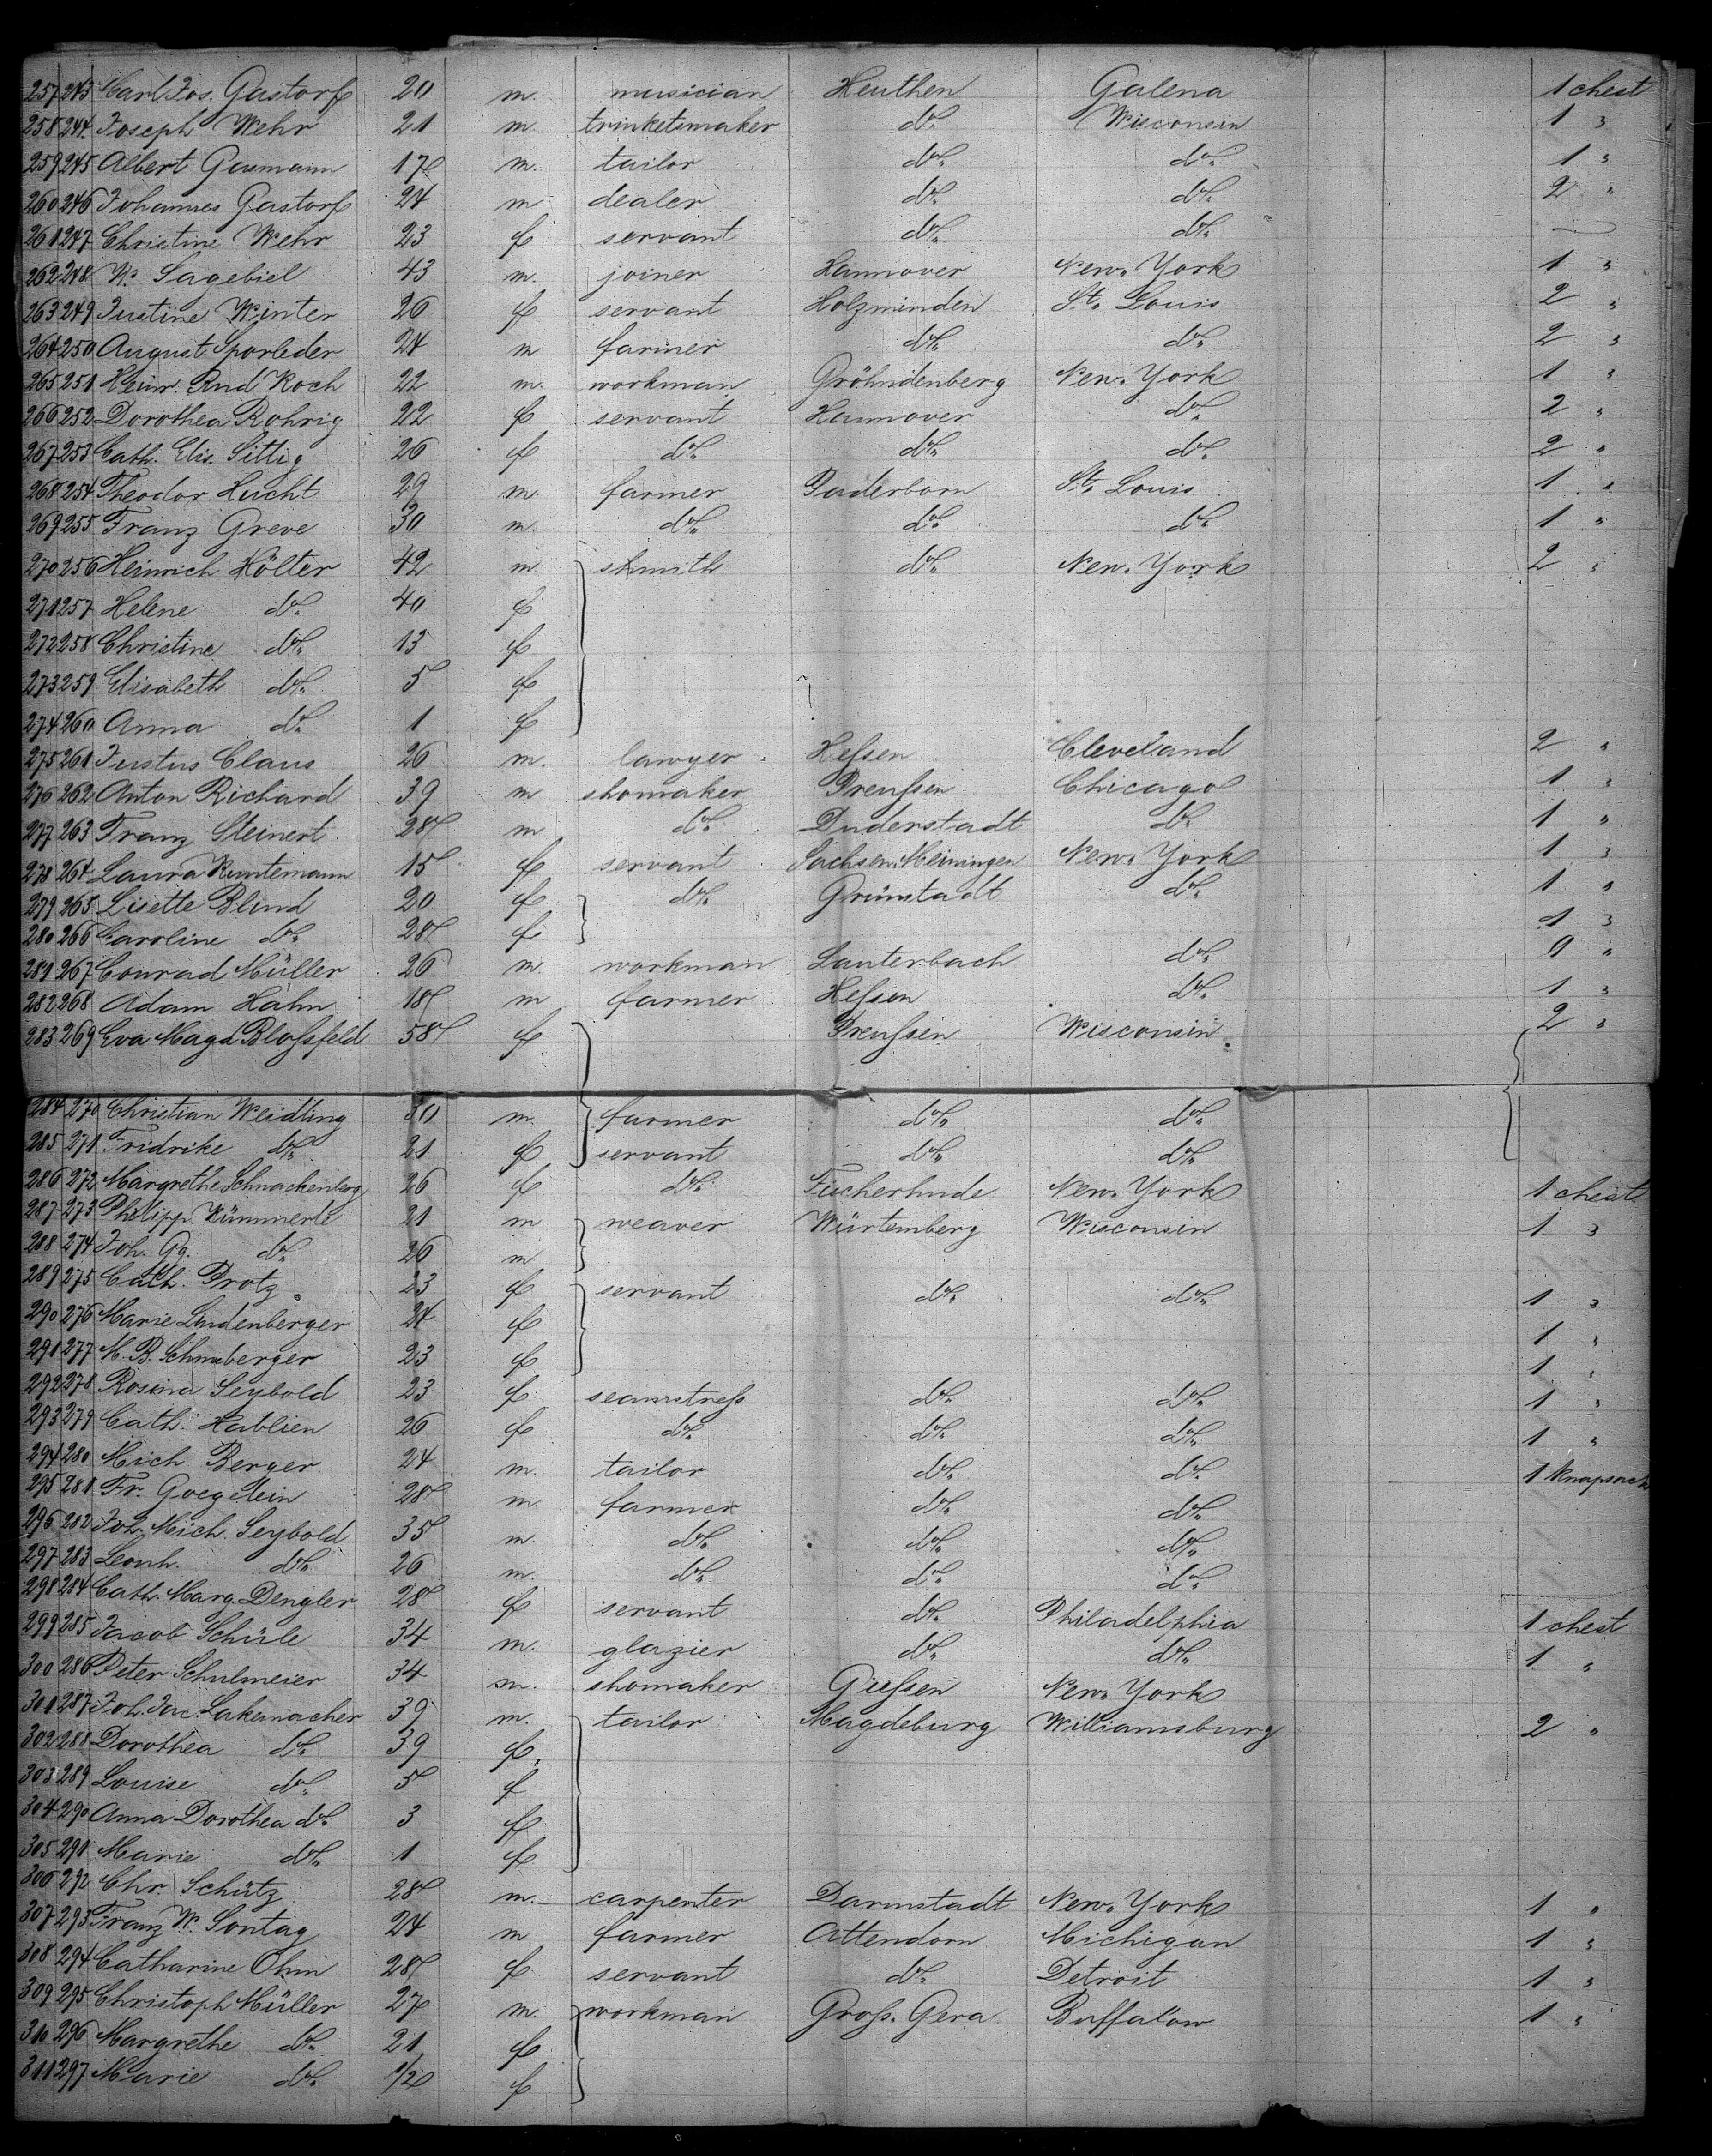 257 243 Carl Jos. Gastorf 20 m. musician Heuthen Galena 1 chest
258 244 Joseph Wehr 21 m. trinketsmaker do. Wisconsin 1 "
259 245 Albert Gaumann 17 m. tailor do. do. 1 "
260 246 Johannes Gastorf 24 m dealer do. do. 2 "
261 247 Christine Wehr 23 f servant do. do. —
262 248 W. Sagebiel 43 m. joiner Hannover New-York 1 "
263 249 Justine Winter 26 f servant Holzminden St. Louis 2 "
264 250 August Sporleder 24 m farmer do. do. 2 "
265 251 Heinr. And Koch 22 m. workman Gröhndenberg New-York 1 "
266 252 Dorothea Rohrig 22 f servant Hannover do. 2 "
267 253 Cath. Elis. Sittig 26 f do. do. do. 2 "
268 254 Theodor Hucht 29 m. farmer Paderborn St. Louis 1 "
269 255 Franz Greve 30 m. do. do. do. 1 "
270 256 Heinrich Hölter 42 m. shmith do. New-York 2 "
271 257 Helene do. 40 f
272 258 Christine do. 13 f
273 259 Elisabeth do. 5 f
274 260 Anna do. 1 f
275 261 Justus Claus 26 m. lawyer Heſsen Cleveland 2 "
276 262 Anton Richard 39 m shomaker Preuſsen Chicago 1 "
277 263 Franz Steinert 28 m do. Duderstadt do. 1 "
278 264 Laura Kuntemann 15 f servant Sachsen Meiningen New-York 1 "
279 265 Lisette Blind 20 f do. Grünstadt do. 1 "
280 266 Caroline do. 28 f 1 "
281 267 Conrad Müller 26 m. workman Lauterbach do. 0 "
282 268 Adam Hahn 18 m farmer Heſsen do. 1 "
283 269 Eva Magd Bloſsfeld 58 f Preuſsen Wisconsin 2 "
284 270 Christian Weidling 30 m. farmer do. do.
285 271 Fridrike do. 21 f servant do. do.
286 272 Margrethe Schnackenberg 26 f do. Fücherhude New-York 1 chest
287 273 Philipp Kümmerle 21 m weaver Würtemberg Wisconsin 1 "
288 274 Joh. Gg. do. 26 m
289 275 Cath. Protz 23 f servant do. do. 1 "
290 276 Marie Lindenberger 24 f 1 "
291 277 M. B. Schneeberger 23 f 1 "
292 278 Rosina Seybold 23 f seamstreſs do. do. 1 "
293 279 Cath. Hablien 26 f do. do. do. 1 "
294 280 Mich Berger 24 m. tailor do. do. 1 Knapsack
295 281 Fr. Goegelein 28 m. farmer do. do.
296 282 Joh. Mich. Seybold 35 m. do. do. do.
297 283 Leonh. do. 26 m. do. do. do.
298 284 Cath. Marg. Dengler 28 f servant do. Philadelphia 1 chest
299 285 Jacob Schüle 34 m. glazier do. do. 1 "
300 286 Peter Schulmeier 34 m. shomaker Gieſsen New-York
301 287 Joh. Jac. Lakemacher 39 m. tailor Magdeburg Williamsburg 2 "
302 288 Dorothea do. 39 f.
303 289 Louise do. 5 f
304 290 Anna Dorothea do. 3 f
305 291 Marie do. 1 f
306 292 Chr. Schütz 28 m. carpenter Darmstadt New-York 1 "
307 293 Franz W. Sontag 24 m farmer Attendorn Michigan 1 "
308 294 Catharine Ohm 28 f servant do. Detroit 1 "
309 295 Christoph Müller 27 m. workman Groſs-Gera Buffalow 1 "
310 296 Margrethe do. 21 f
311 297 Marie do. 1/2 f